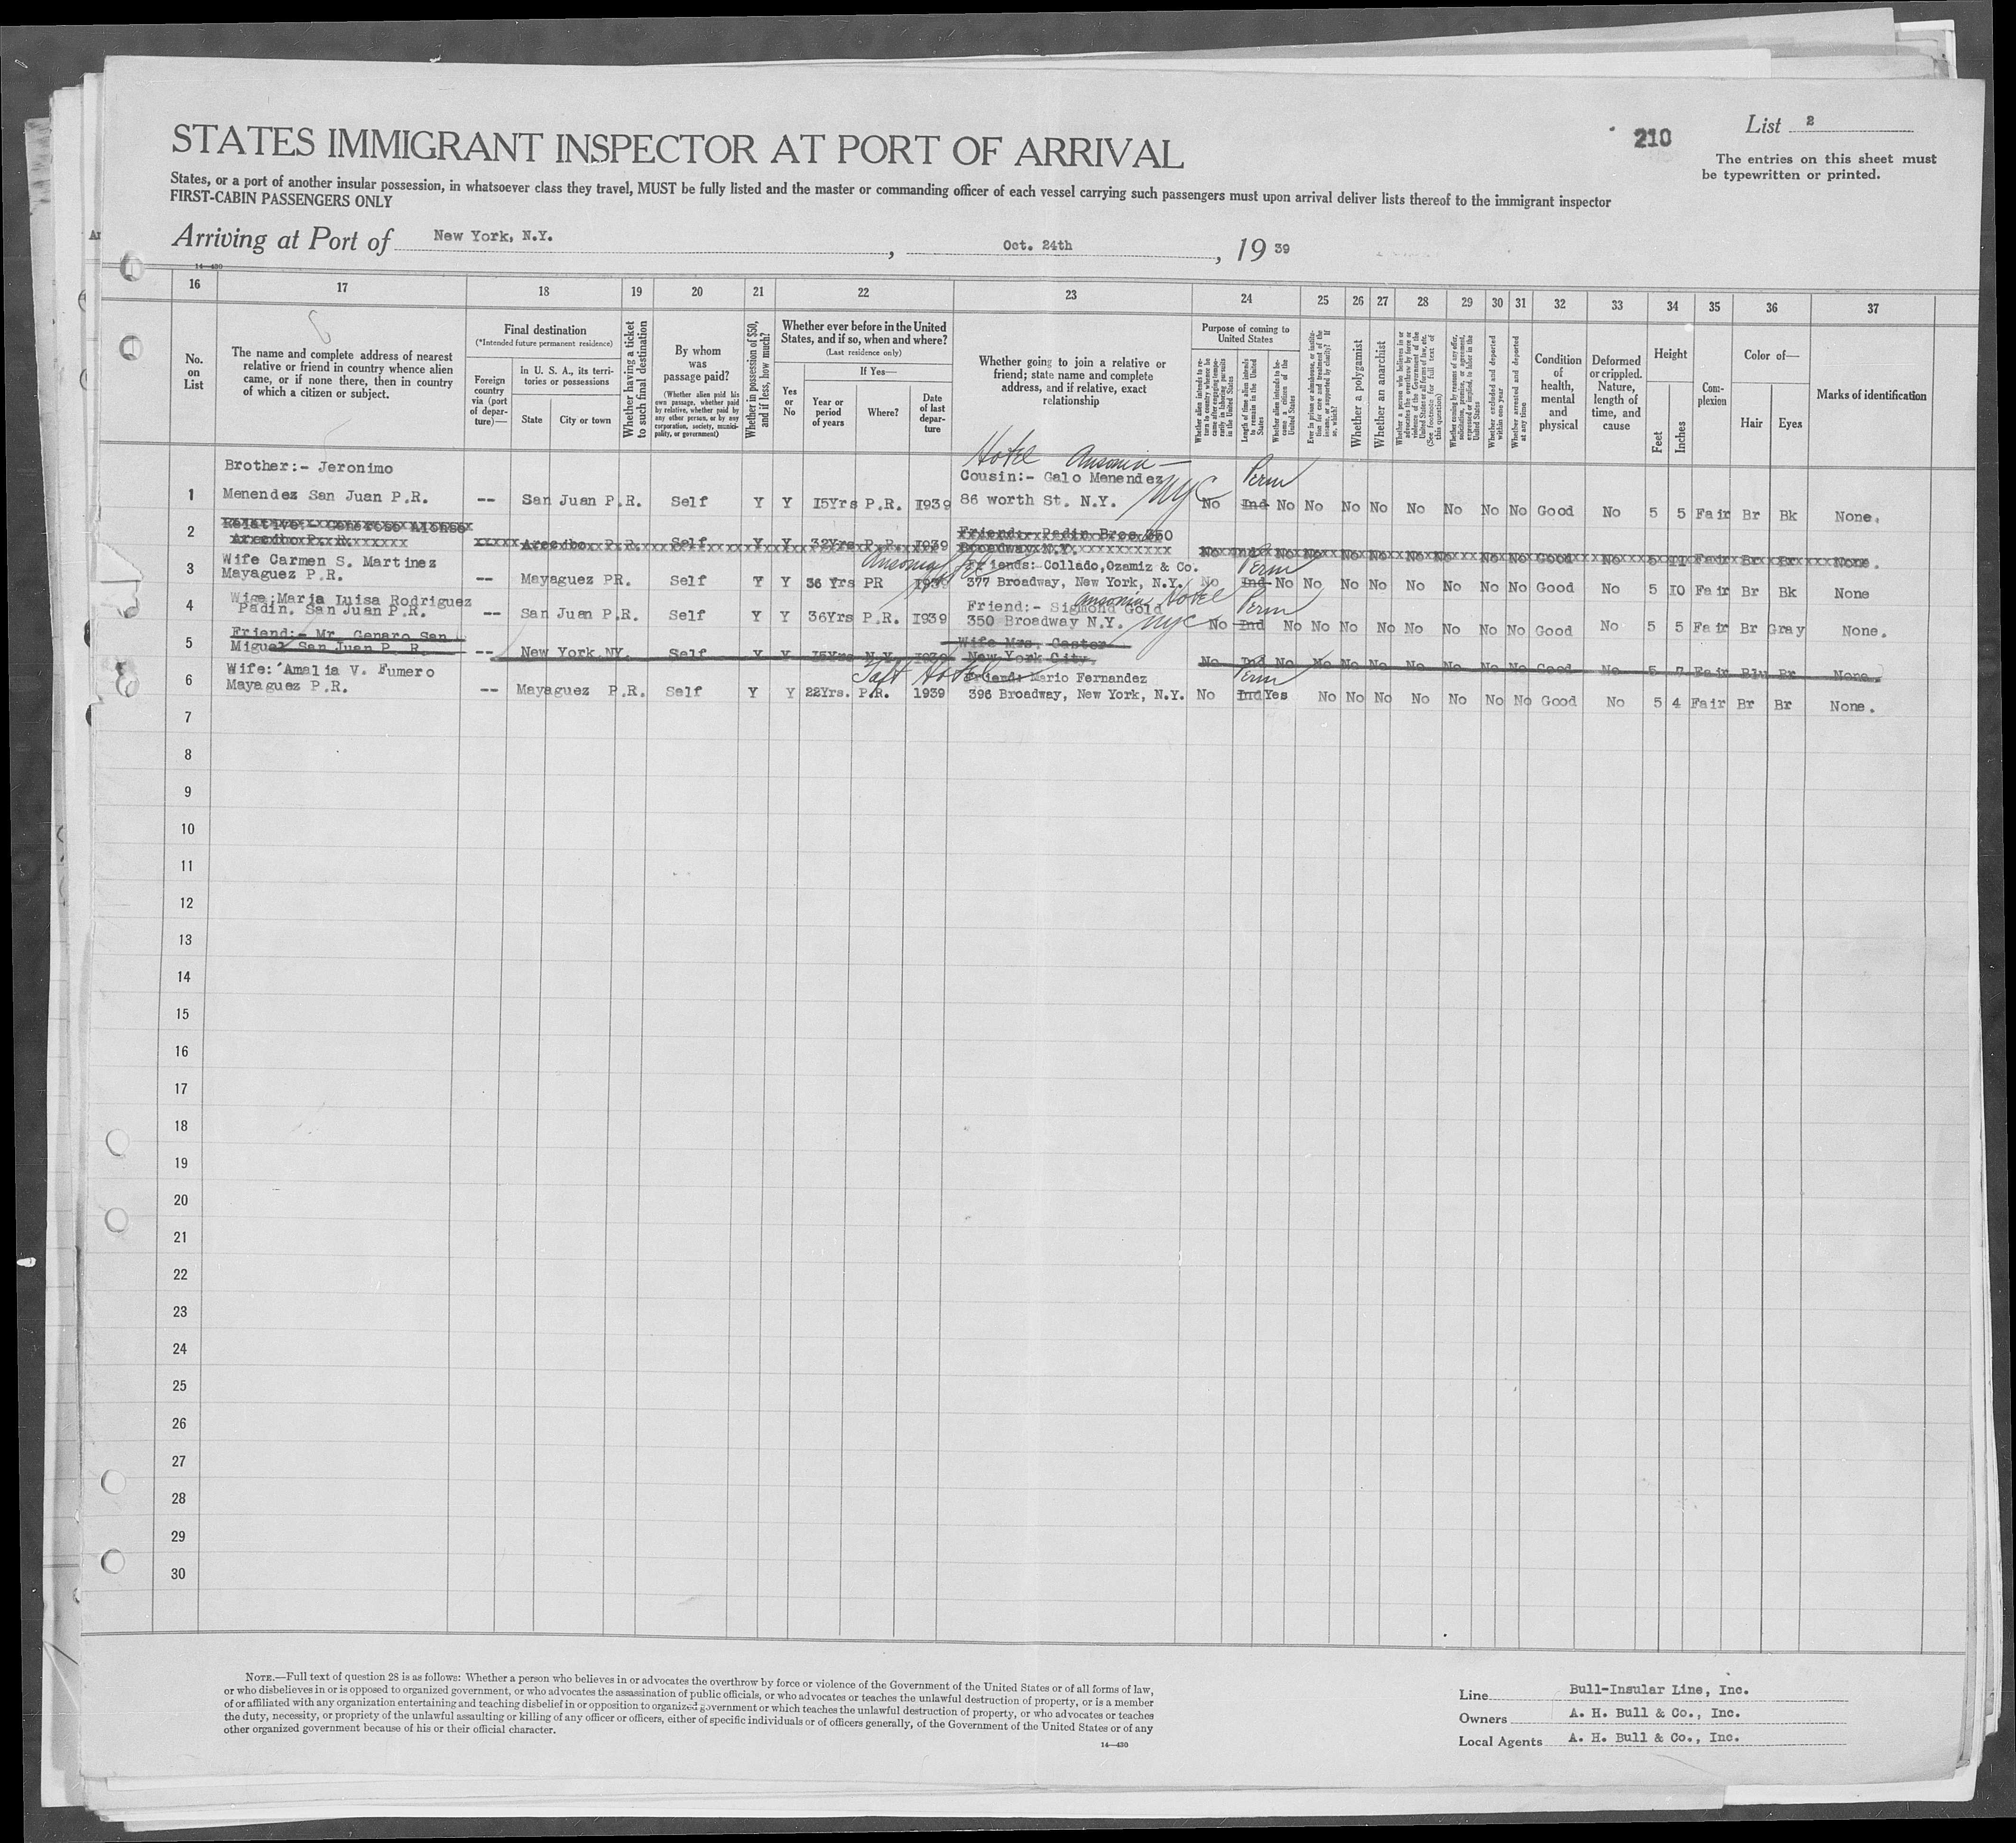 STATES IMMIGRANT INSPECTOR AT PORT OF ARRIVAL
210
List 2
The entries on this sheet must
be typewritten or printed.
States, or a port of another insular possession, in whatsoever class they travel, MUST be fully listed and the master or commanding officer of each vessel carrying such passengers must upon arrival deliver lists thereof to the immigrant inspector
FIRST-CABIN PASSENGERS ONLY
Arriving at Port of New York, N.Y. , Oct. 24th , 19 39
14—430
16 17 18 19 20 21 22 23 24 25 26 27 28 29 30 31 32 33 34 35 36 37
No.
on
List
The name and complete address of nearest
relative or friend in country whence alien
came, or if none there, then in country
of which a citizen or subject.
Final destination
(*Intended future permanent residence)
Foreign
country
via (port
of depar-
ture)—
In U. S. A., its terri-
tories or possessions
State
City or town
Whether having a ticket
to such final destination
By whom
was
passage paid?
(Whether alien paid his
own passage, whether paid
by relative, whether paid by
any other person, or by any
corporation, society, munici-
pality, or government)
Whether in possession of $50,
and if less, how much?
Whether ever before in the United
States, and if so, when and where?
(Last residence only)
Yes
or
No
If Yes—
Year or
period
of years
Where?
Date
of last
depar-
ture
Whether going to join a relative or
friend; state name and complete
address, and if relative, exact
relationship
Purpose of coming to
United States
Whether alien intends to re-
turn to country whence he
came after engaging tempo-
rarily in laboring pursuits
in the United States
Length of time alien intends
to remain in the United
States
Whether alien intends to be-
come a citizen of the
United States
Ever in prison or almshouse, or institu-
tion for care and treatment of the
insane, or supported by charity? If
so, which?
Whether a polygamist
Whether an anarchist
Whether a person who believes in or
advocates the overthrow by force or
violence of the Government of the
United States or all forms of law, etc.
(See footnote for full text of
this question)
Whether coming by reasons of any offer,
solicitation, promise, or agreement,
expressed or implied, to labor in the
United States
Whether excluded and deported
within one year
Whether arrested and deported
at any time
Condition
of
health,
mental
and
physical
Deformed
or crippled.
Nature,
length of
time, and
cause
Height
Feet
Inches
Com-
plexion
Color of—
Hair
Eyes
Marks of identification
Hotel Ansonia —
Brother:- Jeronimo Cousin:- Galo Menendez Perm
1 Menendez San Juan P.R. -- San Juan P.R. Self Y Y 15Yrs P.R. 1939 86 worth St. N.Y. NYC No Ind No No No No No No No No Good No 5 5 Fair Br Bk None.
Relative:- Generoso Alonso Friend:- Padin Bros 350
2 Arecibo P. R. Arecibo P.R. Self Y Y 32Yrs P.R. 1939 Broadway N.Y. No Ind No No No No No No No No Good No 5 11 Fair Br Br None.
Wife Carmen S. Martinez Ansonia Hotel Friends:- Collado,Ozamiz & Co. Perm
3 Mayaguez P.R. -- Mayaguez PR. Self Y Y 36 Yrs PR 1939 377 Broadway, New York, N.Y. No Ind No No No No No No No No Good No 5 10 Fair Br Bk None
Ansonia Hotel
4 Wige;Maria Luisa Rodriguez Friend:- Sigmond Gold Perm
Padin. San Juan P.R. -- San Juan P.R. Self Y Y 36Yrs P.R. 1939 350 Broadway N.Y. NYC No Ind No No No No No No No No Good No 5 5 Fair Br Gray None.
Friend:- Mr. Genaro San Wife Mrs. Castor
5 Miguel San Juan P. R. -- New York NY. Self Y Y 15Yrs N.Y. 1939 New York City. No Ind No No No No No No No No Good No 5 7 Fair Blu Br None.
Wife: Amalia V. Fumero Taft Hotel Friend: Mario Fernandez Perm
6 Mayaguez P.R. -- Mayaguez P.R. Self Y Y 22Yrs. P.R. 1939 396 Broadway, New York, N.Y. No Ind Yes No No No No No No No Good No 5 4 Fair Br Br None.
7
8
9
10
11
12
13
14
15
16
17
18
19
20
21
22
23
24
25
26
27
28
29
30
NOTE.—Full text of question 28 is as follows: Whether a person who believes in or advocates the overthrow by force or violence of the Government of the United States or of all forms of law,
or who disbelieves in or is opposed to organized government, or who advocates the assassination of public officials, or who advocates or teaches the unlawful destruction of property, or is a member
of or affiliated with any organization entertaining and teaching disbelief in or opposition to organized government or which teaches the unlawful destruction of property, or who advocates or teaches
the duty, necessity, or propriety of the unlawful assaulting or killing of any officer or officers, either of specific individuals or of officers generally, of the Government of the United States or of any
other organized government because of his or their official character.
14—430
Line Bull-Insular Line, Inc.
Owners A. H. Bull & Co., Inc.
Local Agents A. H. Bull & Co., Inc.